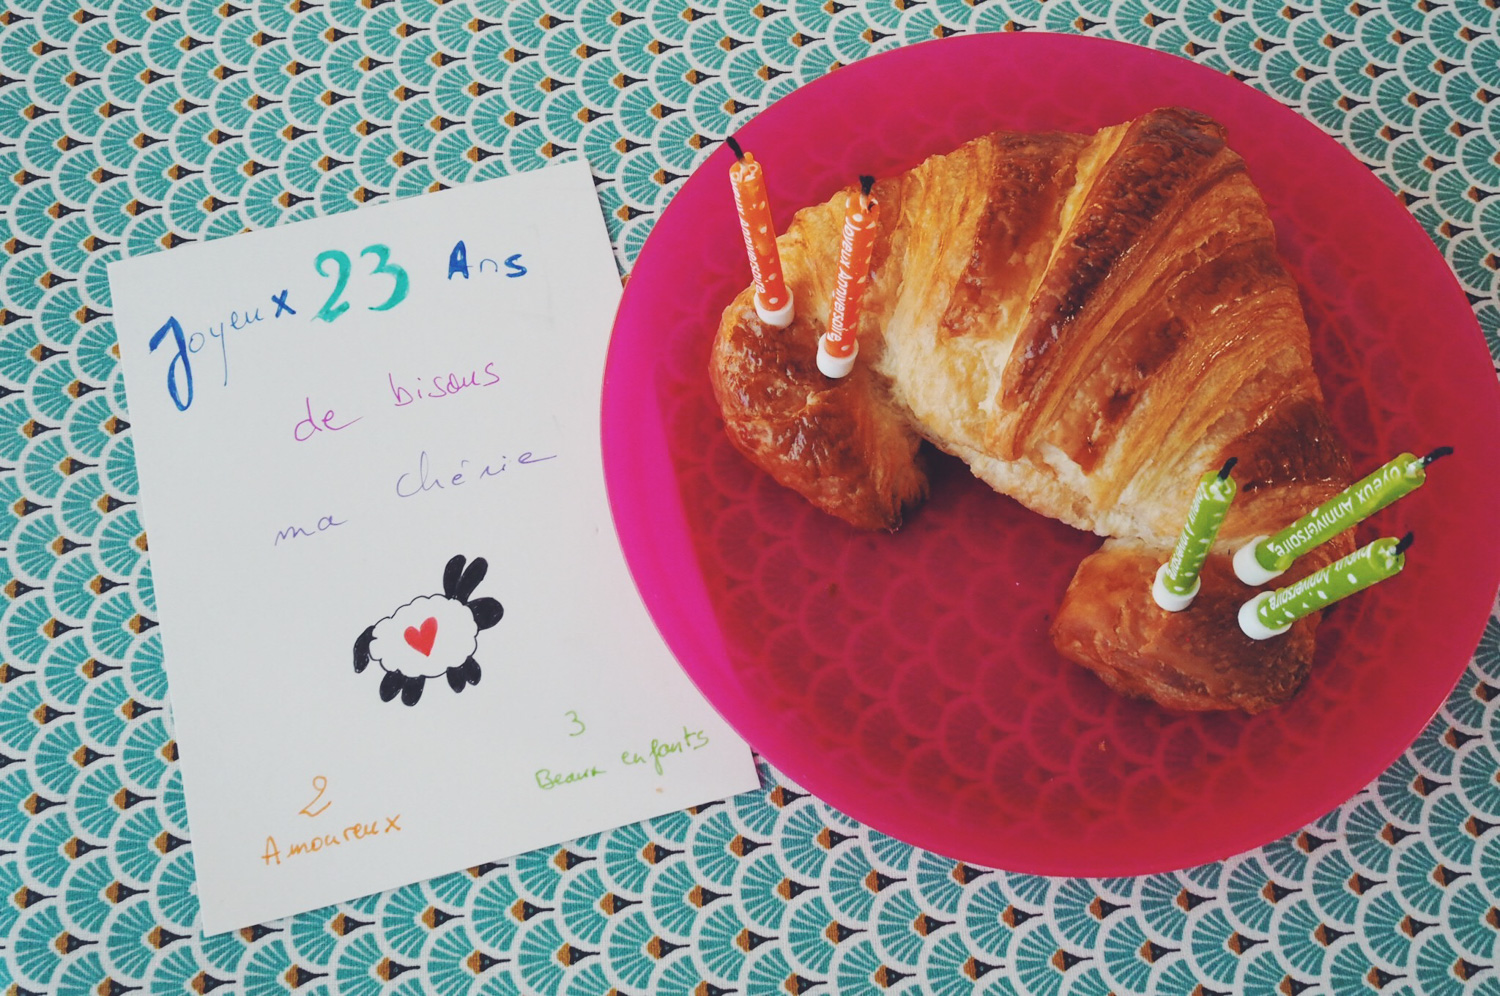 Joyeux 23 Ans
de bisous
ma chérie
2
Amoureux
3
Beaux enfants
Joyeux Anniversaire
Joyeux Anniversaire
Joyeux Anniversaire
Joyeux Anniversaire
Joyeux Anniversaire